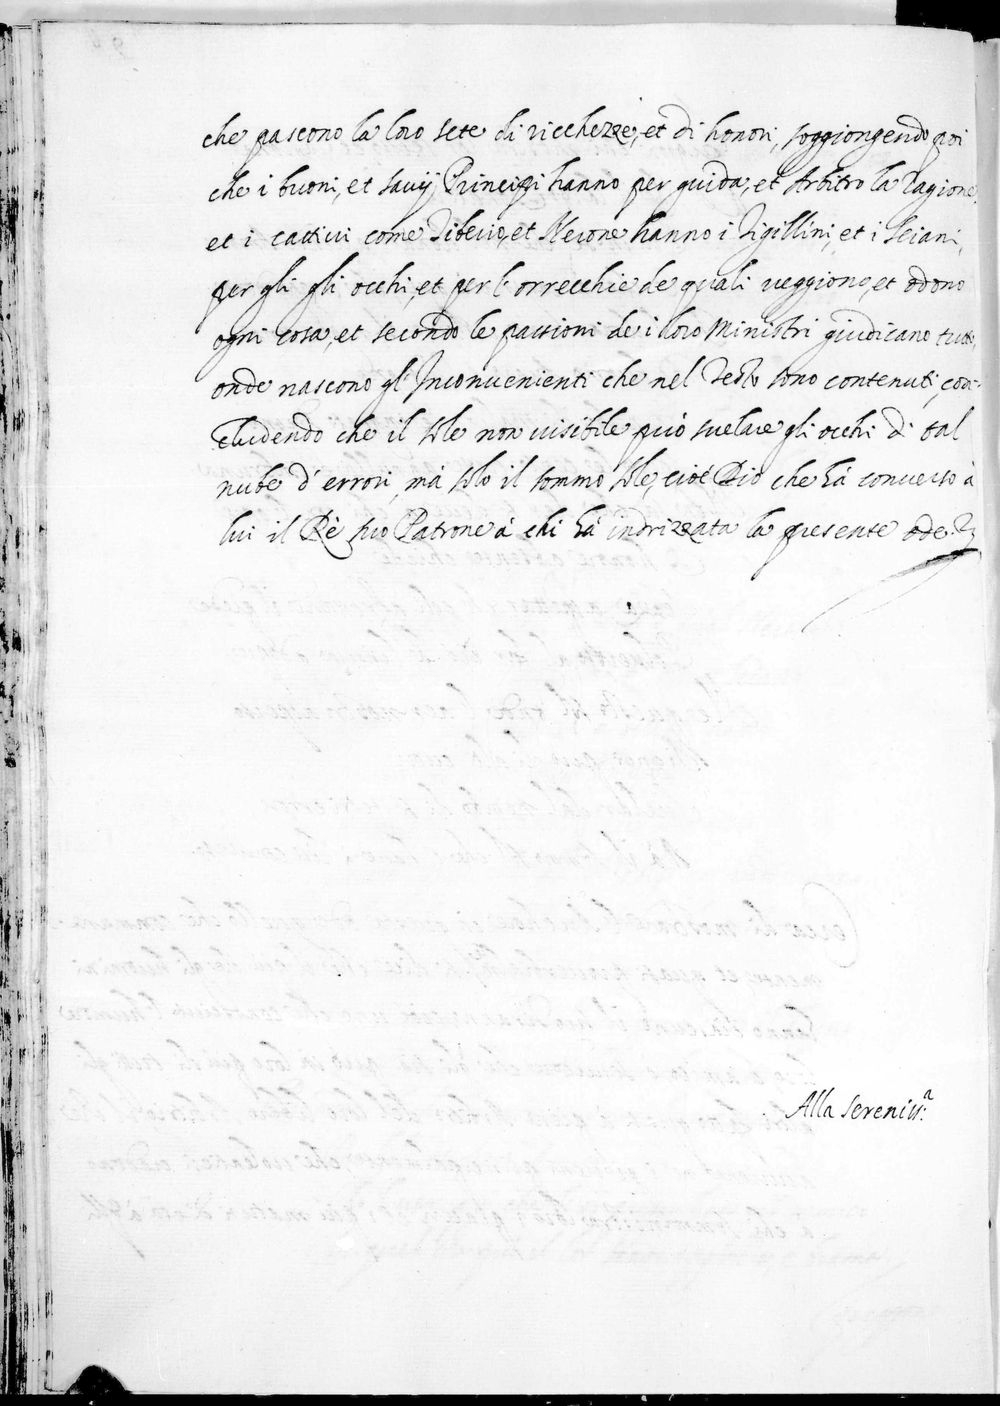 che pascono la loro sete di ricchezze, et di honori, soggiongendo poi
che i buoni, et savij Principi hanno per guida, et Arbitro la Ragione,
et i cattivi come Tiberio, et Nerone hanno i Tigillini, et i Seiani,
per gli gli occhi, et per l'orrecchie de quali veggiono, et odono
ogni cosa, et secondo le passioni de i loro Ministri giudicano tutto,
onde nascono gl'Inconvenienti che nel Testo sono contenuti, con-
cludendo che il sole non visibile può svelare gli occhi di tal
nube d'errori, mà solo il sommo sole, cioè Dio che hà converso à
lui il Rè suo Patrone à chi hà indrizzata la presente ode.
Alla Sereniss.ª